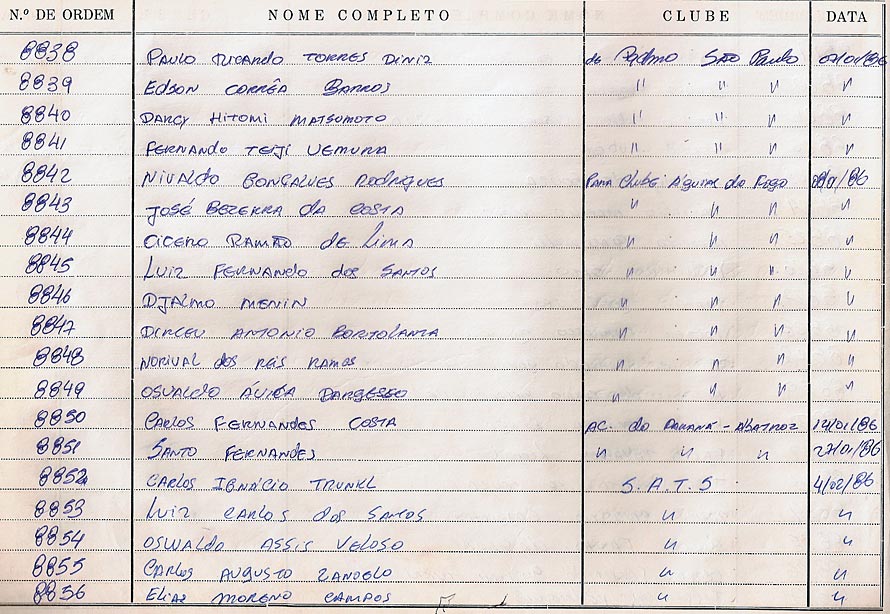 N.º DE ORDEM NOME COMPLETO CLUBE DATA
8838 PAULO RICARDO TORRES DINIZ de Pqdmo SÃO Paulo 07/01/86
8839 EDSON CORRÊA BARROS " " " "
8840 DARCY HITOMI MATSUMOTO " " " "
8841 FERNANDO TEIJI UEMURA " " " "
8842 NIVALDO GONÇALVES RODRIGUES PARA Clube Águias do Fogo /86
8843 JOSÉ BEZERRA DA COSTA " " " "
8844 CICERO RAMÃO DE LIMA " " " "
8845 LUIZ FERNANDO DOS SANTOS " " " "
8846 DJALMO MENIN " " " "
8847 DIRCEU ANTONIO BORTOLANZA " " " "
8848 NORIVAL DOS REIS RAMOS " " " "
8849 OSVALDO ÁVILA " " " "
8850 CARLOS FERNANDES COSTA AC. do PARANÁ - Albatroz 14/01/86
8851 SANTO FERNANDES " " " 27/01/86
8852 CARLOS IGNÁCIO TRUNKL S.A.T.S 4/02/86
8853 LUIZ CARLOS DOS SANTOS " "
8854 OSWALDO ASSIS VELOSO " "
8855 CARLOS AUGUSTO ZANDELO " "
8856 ELIAS MORENO CAMPOS " "